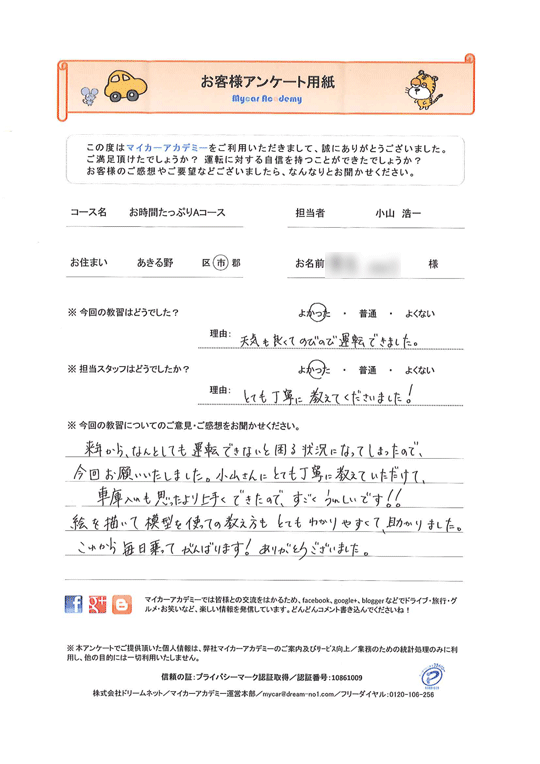 お客様アンケート用紙
Mycar Academy
この度はマイカーアカデミーをご利用いただきまして、誠にありがとうございました。
ご満足頂けたでしょうか? 運転に対する自信を持つことができたでしょうか?
お客様のご感想やご要望などございましたら、なんなりとお聞かせください。
コース名 お時間たっぷりAコース 担当者 小山 浩一
お住まい あきる野 区 市 郡 お名前 様
※ 今回の教習はどうでした? よかった ・ 普通 ・ よくない
理由: 天気も良くてのびのび運転できました。
※ 担当スタッフはどうでしたか? よかった ・ 普通 ・ よくない
理由: とても丁寧に教えてくださいました!
※ 今回の教習についてのご意見・ご感想をお聞かせください。
来年から、なんとしても運転できないと困る状況になってしまったので、
今回お願いいたしました。小山さんにとても丁寧に教えていただけて、
車庫入れも思ったより上手くできたので、すごくうれしいです!!
絵を描いて模型を使っての教え方もとてもわかりやすくて、助かりました。
これから毎日乗ってがんばります! ありがとうございました。
マイカーアカデミーでは皆様との交流をはかるため、facebook、google+、bloggerなどでドライブ・旅行・グ
ルメ・お笑いなど、楽しい情報を発信しています。どんどんコメント書き込んでくださいね!
※ 本アンケートでご提供頂いた個人情報は、弊社マイカーアカデミーのご案内及びサービス向上／業務のための統計処理のみに利
用し、他の目的には一切利用いたしません。
信頼の証:プライバシーマーク認証取得／認証番号:10861009
株式会社ドリームネット／マイカーアカデミー運営本部／mycar@dream-no1.com／フリーダイヤル:0120-106-256